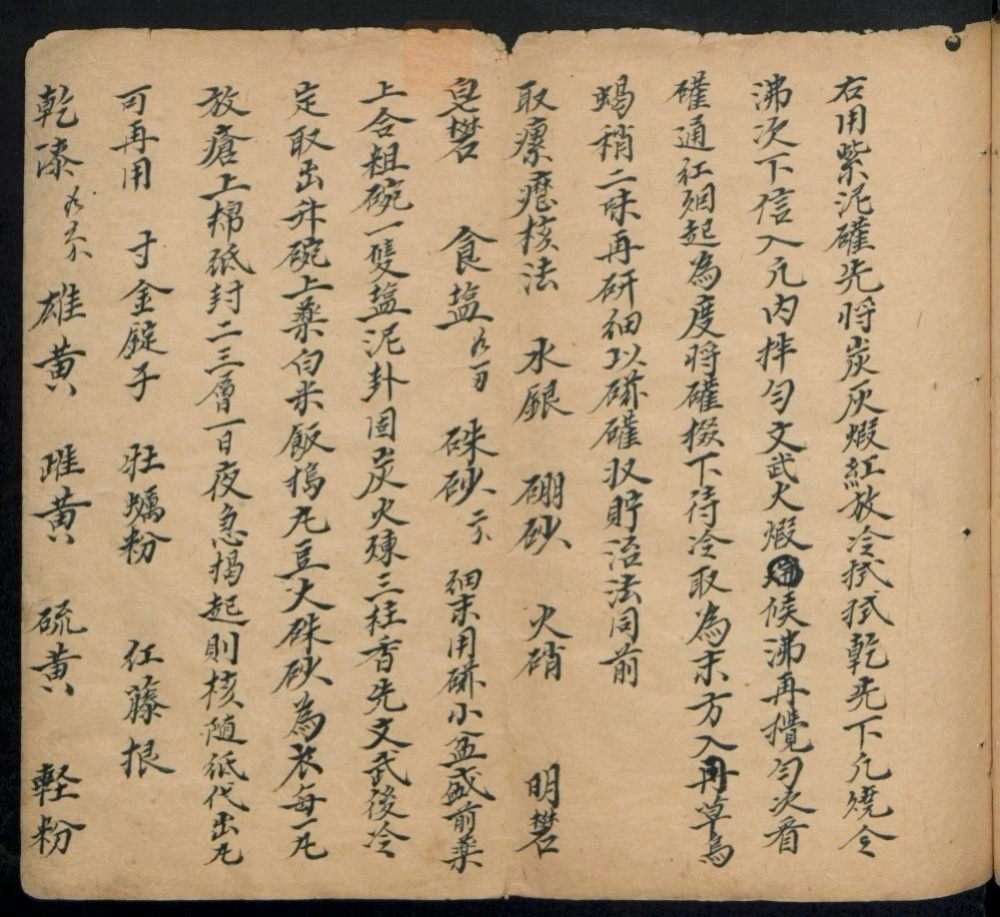 右用紫泥確先将炭灰煅紅放冷拭拭乾先下亢燒令
沸次下信入亢内拌匀文武火煅候沸再攪匀次看
確通紅烟起為度将確掇下待冷取為末方入再草烏
蝎稍二味再研細以磁確収貯治法同前
取瘰癧核法 水銀 硼砂 火硝 明礬
皂礬 食塩各一两 硃砂二分 細末用磁小盆盛前薬
上合粗碗一隻塩泥卦固炭火煉三柱香先文武後冷
定取出升碗上薬白米飯搗丸豆大硃砂為衣每一丸
放瘡上棉紙封二三層一日夜急揭起則核随紙代出丸
可再用 寸金錠子 牡蠣粉 紅藤根
乾漆各分 雄黄 雌黄 硫黄 軽粉